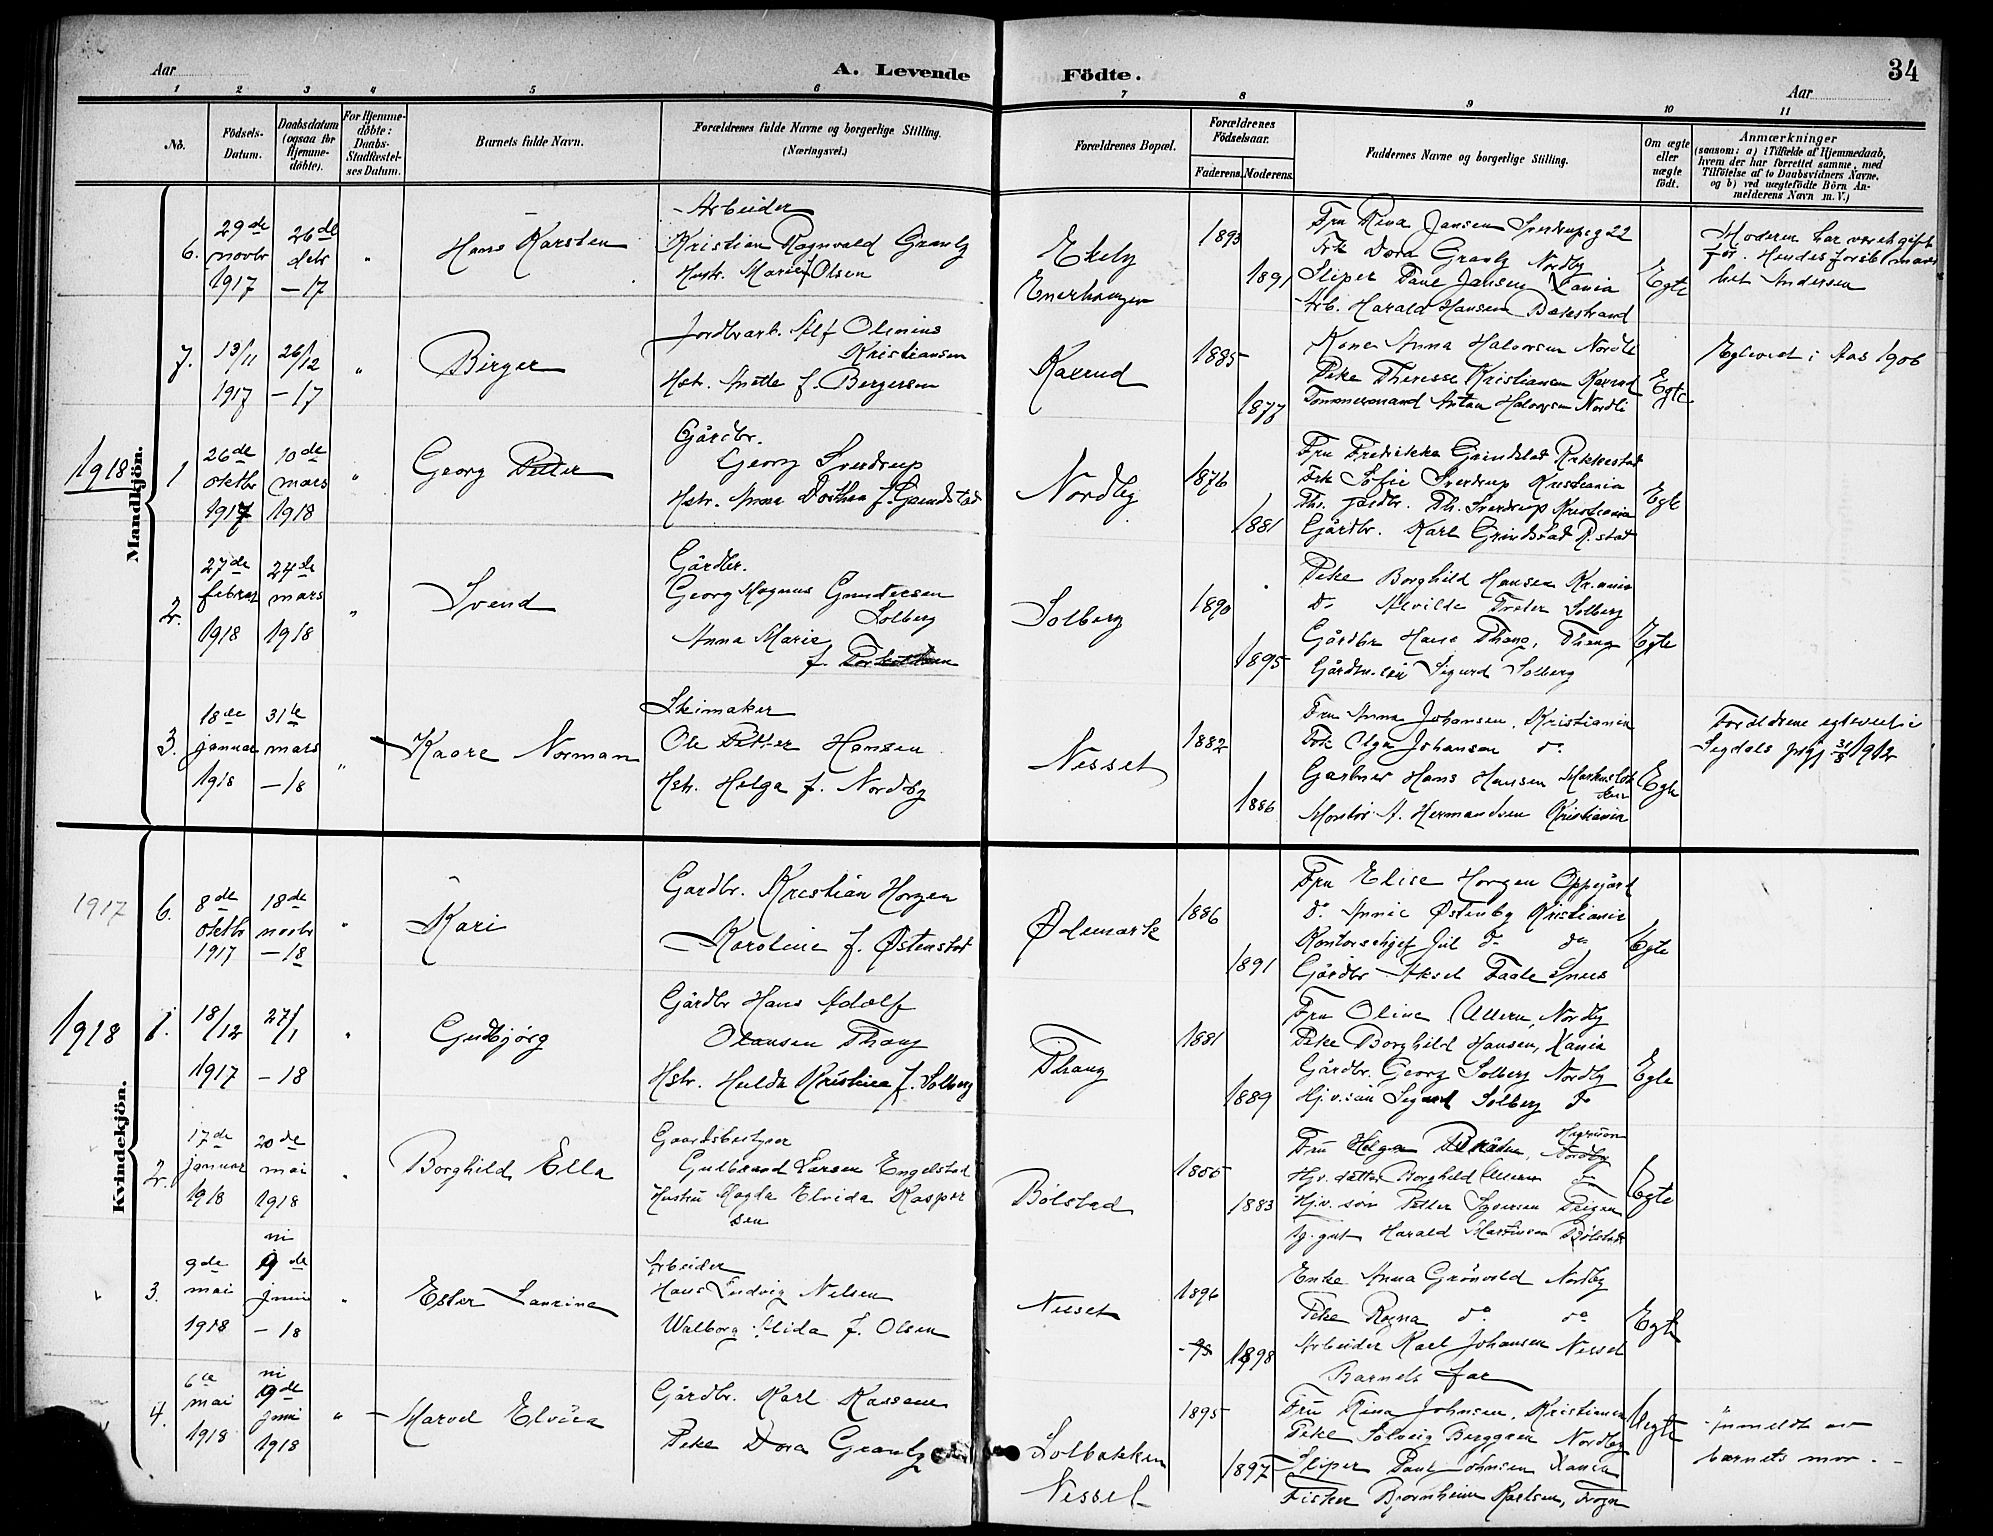 Aar
A. Levende Födte.
34
Aar
1 2 3 4 5 6 7 8 9 10 11
No.
Födsels-Datum.
Daabsdatum (ogsaa for Hjemme-döbte).
For Hjemme-döbte: Daabs-Stadfæstel-ses Datum.
Barnets fulde Navn.
Forældrenes fulde Navne og borgerlige Stilling.
(Næringsvei.)
Forældrenes Bopæl.
Forældrenes Födselsaar.
Faderens. Moderens.
Faddernes Navne og borgerlige Stilling.
Om ægte eller uægte födt.
Anmærkninger
(saasom: a) i Tilfælde af Hjemmedaab,
hvem der har forrettet samme, med
Tilföielse af to Daabsvidners Navne.
og b) ved uægtefödte Börn An-
melderens Navn m. V.)
Mandkjön.
6. 29de novbr 1917
26de debr – 17
"
Hans Karsten
Arbeider
Kristian Ragnvald Granly
Hustr. Marie f. Olsen
Ekeby
Enerhaugen
1893
1891
Fru Rina Jansen Sverdrupsg 22
Frk Dora Granly Nordby
Sliper Paul Jansen Xania
Arb. Harald Hansen
Egte
Moderen har været gift
før. Hendes første mand
het Andersen
7. 13/11 1917
26/12 – 17
"
Birger
Jordbrark. Alf Olinius
Kristiansen
Hstr. Anette f. Bergersen
Kaxrud
1885
1877
Kone Anna Halvorsen Nordli
Pike Therese Kristiansen Kaxrud
Tømmermand Anton Halvorsen Nordli
Egte
Egteviet i Aas 1906
1918
1 26de oktbr 1917
10de mars 1918
"
Georg Petter
Gårdbr.
Georg Sverdrup
Hstr. Anna Dorthea f. Grindstad
Nordby
1876
1881
Fru Fredrikke Grindstad Rakkestad
Frk Sofie Sverdrup Kristiania
Th. Sverdrup Kristiania
Gårdbr. Karl Grindstad R.stad
Egte
2. 27de febrar 1918
24de mars 1918
"
Svend
Gårdbr.
Georg Magnus Gundersen
Solberg
Anna Marie
f.
Solberg
1890
1895
Pike Borghild Hansen Kr.ania
do Alvilde Solberg
Gårdbr Hans Thang, Thang
Gårdbr.søn Sigurd Solberg
Egte
3. 18de januar 1918
31te mars – 18
"
Kaare Norman
Skimaker
Ole Petter Hansen
Hstr. Helga f. Nordby
Nesset
1882
1886
Fru Anna Johansen, Kristiania
Frk Olga Johansen do
Gartner Hans Hansen
Montør A. Hermandsen Kristiania
Egte
Forældrene egteviet i
Sigdals prgj 1912
Kvindekjön.
1917
6. 8de oktbr 1917
18de novbr – 18
"
Kari
Gardbr. Kristian Horgen
Karoline f. Østenstad
Ødemark
1886
1891
Fru Elise Horgen Oppegård
do Annie Østenby Kristiania
Kontorschef Jul do do
Gårdbr Aksel
Egte
1918
1. 18/12 1917
27/1 – 18
"
Gudbjørg
Gårdbr Hans Adolf
Olausen Thang
Hstr. Hulda Kristine f. Solberg
Thang
1881
1889
Fru Oline Ullern, Nordby
Pike Borghild Hansen, Xania
Gårdbr. Georg Solberg Nordby
Hj.v.søn Sigurd Solberg do
Egte
2. 17de januar 1918
20de mai 1918
"
Borghild Ella
Gaardsbestyrer
Gulbrand Larsen Engelstad
Hustru Magda Elvida Kasper
sen
Bølstad
1883
Fru Helga Nordby
Hj.v.datter Borghild Ullern do
Hj.v. søn Petter Syversen
Harald Martinsen Bølstad
Egte
3. 9de mai 1918
9de juni – 18
"
Ester Laurine
Arbeider
Hans Ludvig Nilsen
Walborg Alida f. Olsen
Nesset
1896
1898
Enke Anna Grönvold Nordby
Pike Ragna do do
Arbeider Karl Johansen Nesset
Barnets far
Egte
4. 6te mai 1918
9de juni 1918
"
Marvel Elvira
Gårdbr. Karl
Pike Dora Granly
Solbakken
Nesset
1895
1897
Fru Rina Johnsen, Kristiania
Pike Solveig Berggren Nordby
Sliper Paul Johnsen Xania
Fisker Bjornheim Karlsen, Frogn
Uegte
Inmeldt av
barnets mor. –